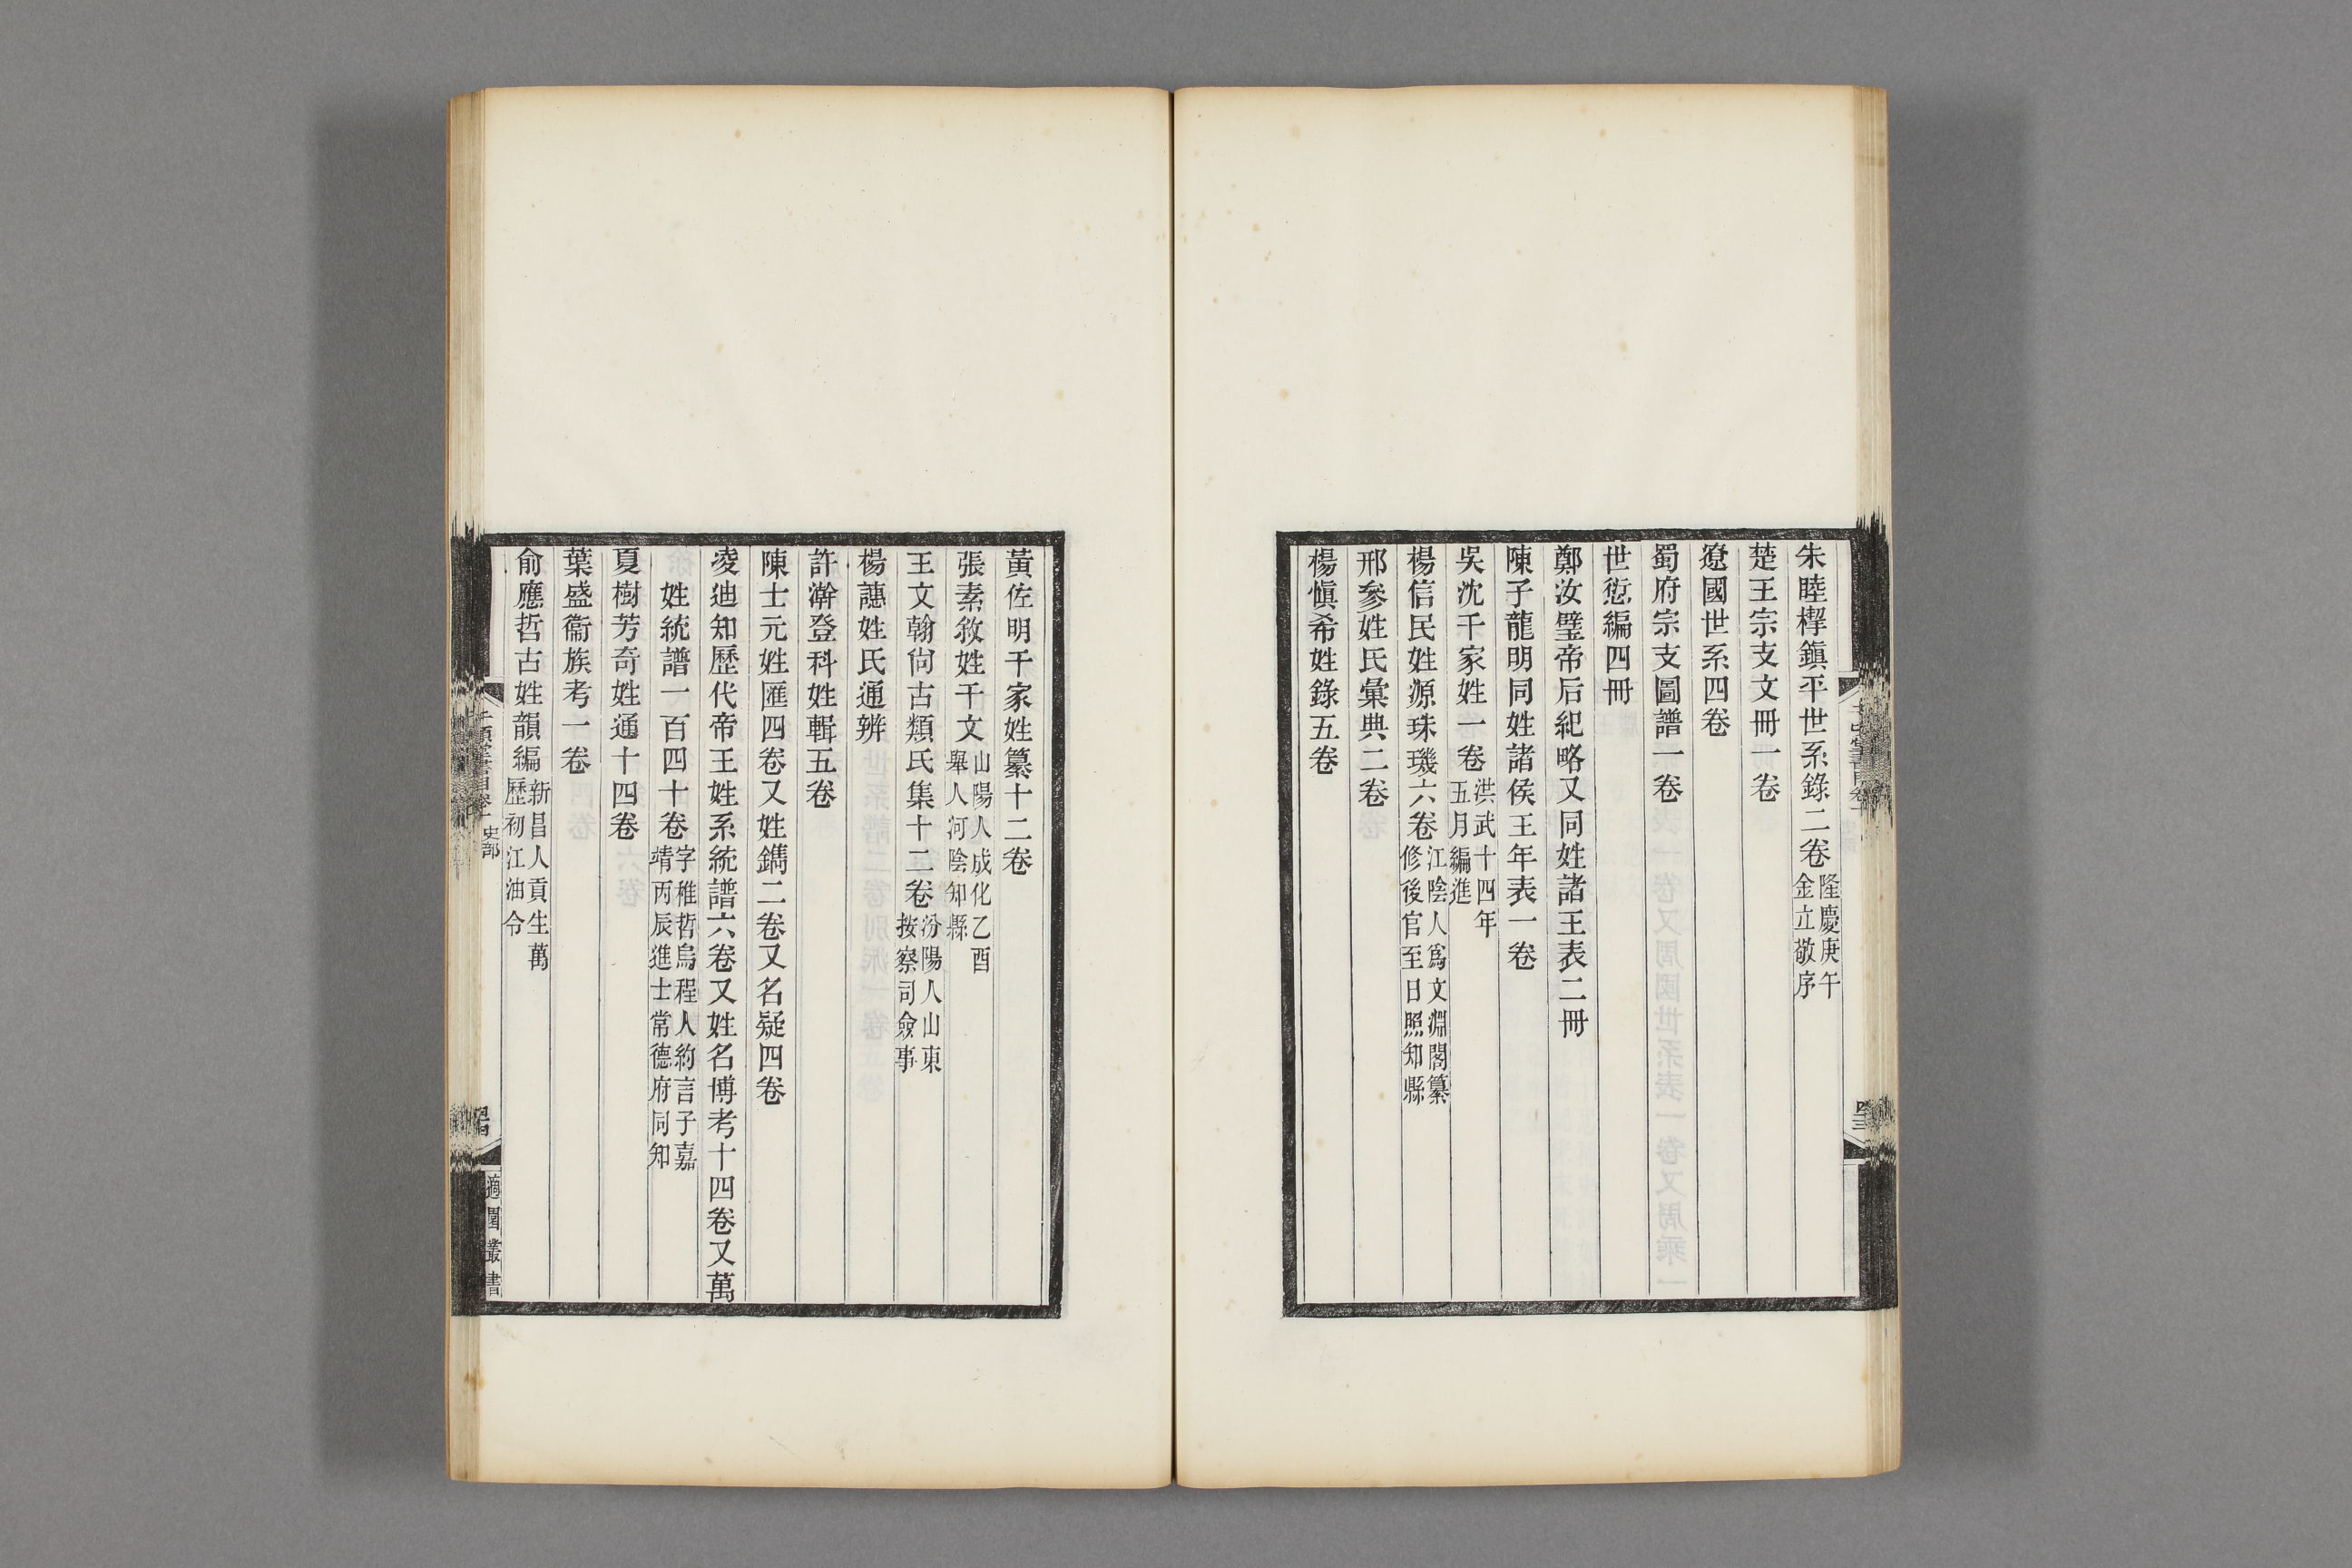 朱睦㮮鎮平世系錄二卷隆慶庚午金立敬序
楚王宗支文冊一卷
遼國世系四卷
蜀府宗支圖譜一卷
世愆編四冊
鄭汝璧帝后紀略又同姓諸王表二冊
陳子龍明同姓諸侯王年表一卷
吳沈千家姓一卷洪武十四年五月編進
楊信民姓源珠璣六卷江陰人爲文淵閣纂修後官至日照知縣
邢參姓氏彙典二卷
楊愼希姓錄五卷
黃佐明千家姓纂十二卷
張素敘姓千文山陽人成化乙酉舉人河陰知縣
王文翰尙古類氏集十二卷汾陽人山東按察司僉事
楊譓姓氏通辨
許瀚登科姓輯五卷
陳士元姓匯四卷又姓鐫二卷又名疑四卷
凌迪知歷代帝王姓系統譜六卷又姓名博考十四卷又萬
姓統譜一百四十卷字稚哲烏程人約言子嘉靖丙辰進士常德府同知
夏樹芳奇姓通十四卷
葉盛衞族考一卷
俞應哲古姓韻編新昌人貢生萬歷初江油令
史部
適園叢書